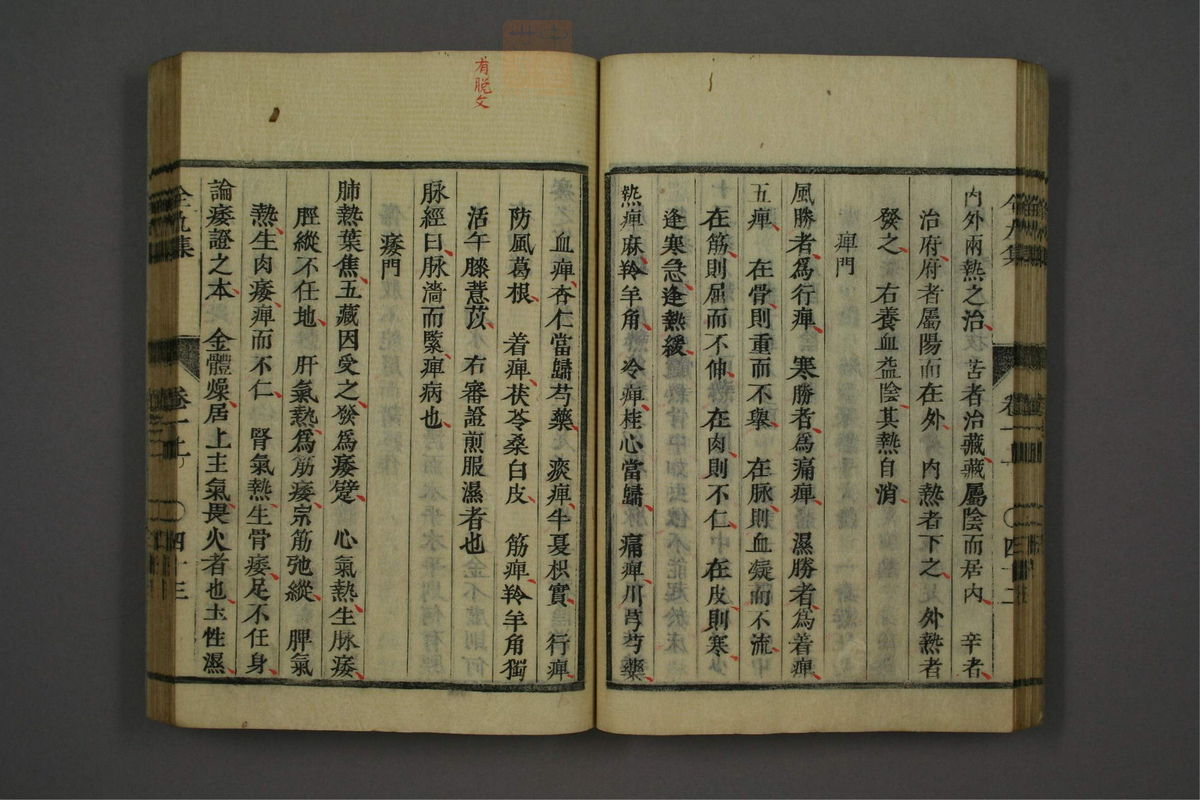 内外兩熱之治 苦者治藏藏屬陰而居内 辛者
治府府者屬陽而在外 内熱者下之 外熱者
發之 右養血益陰其熱自消
痺門
風勝者爲行痺 寒勝者爲痛痺 濕勝者爲着痺
五痺 在骨則重而不舉 在脉則血凝而不流
在筋則屈而不伸 在肉則不仁 在皮則寒
逢寒急逢熱緩
熱痺麻羚羊角 冷痺桂心當歸 痛痺川芎芍藥
血痺杏仁當歸芍藥 痰痺牛夏枳實 行痺
防風葛根 着痺茯苓桑白皮 筋痺羚羊角獨
活午膝薏苡 右審證煎服濕者也
脉經曰脉濇而緊痺病也
痿門
肺熱葉焦五藏因受之發爲痿躄 心氣熱生脉痿
脛縱不任地 肝氣熱爲筋痿宗筋弛縱 脾氣
熱生肉痿痺而不仁 腎氣熱生骨痿足不任身
論痿證之本 金體燥居上主氣畏火者也土性濕
有脱文
全九集
卷一上
四十三